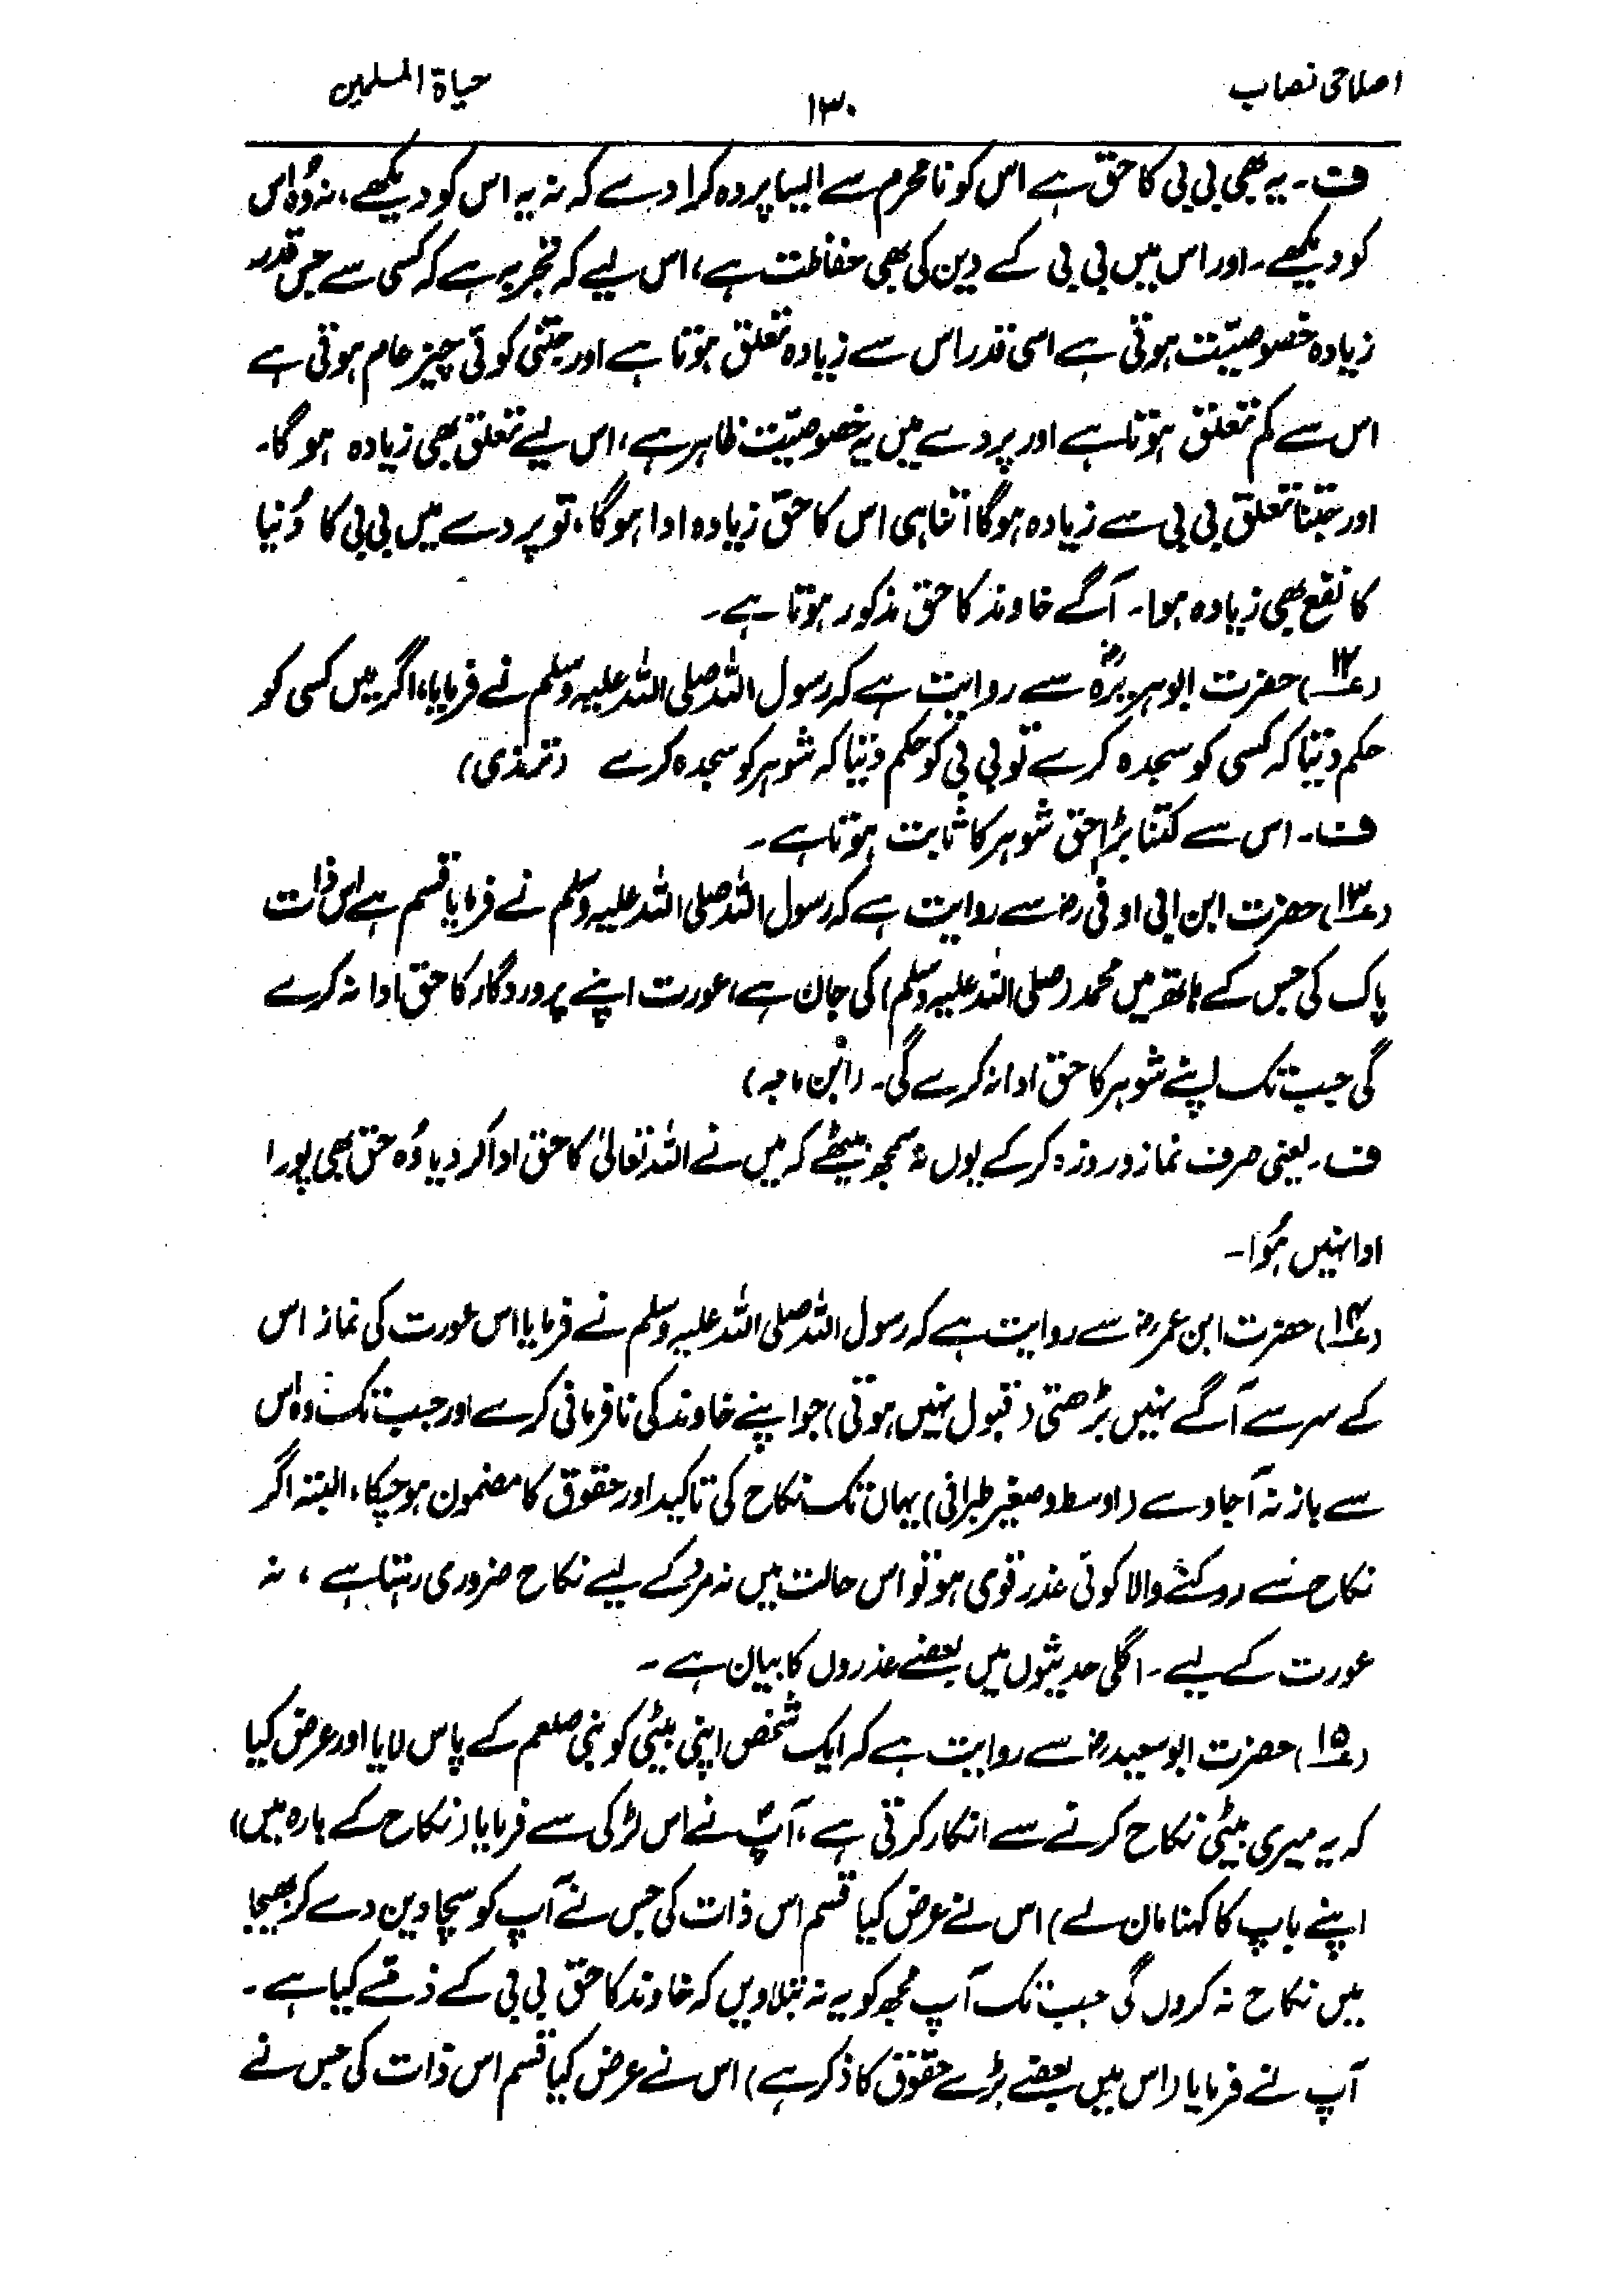 اصلاحی نصاب
۱۳۰
حیاۃ المسلمین
ف۔ یہ بھی بی بی کا حق ہے اس کو نامحرم سے ایسا پردہ کرا دے کہ نہ یہ اس کو دیکھے، نہ وُہ اس
کو دیکھے۔ اور اس میں بی بی کے دین کی بھی حفاظت ہے، اس لیے کہ تجربہ ہے کہ کسی سے جس قدر
زیادہ خصوصیّت ہوتی ہے اسی قدر اس سے زیادہ تعلق ہوتا ہے اور جتنی کوئی چیز عام ہوتی ہے
اس سے کم تعلق ہوتا ہے اور پردے میں یہ خصوصیّت ظاہر ہے، اس لیے تعلق بھی زیادہ ہو گا۔
اور جتنا تعلق بی بی سے زیادہ ہو گا اتنا ہی اس کا حق زیادہ ادا ہو گا، تو پردے میں بی بی کا دُنیا
کا نفع بھی زیادہ ہوا۔ آگے خاوند کا حق مذکور ہوتا ہے۔
(ع۱۲) حضرت ابوہریرہؓ سے روایت ہے کہ رسول اللہ صلی اللہ علیہ وسلم نے فرمایا، اگر میں کسی کو
حکم دیتا کہ کسی کو سجدہ کرے تو بی بی کو حکم دیتا کہ شوہر کو سجدہ کرے (ترمذی)
ف۔ اس سے کتنا بڑا حق شوہر کا ثابت ہوتا ہے۔
(ع۱۳) حضرت ابن ابی اوفیٰ رض سے روایت ہے کہ رسول اللہ صلی اللہ علیہ وسلم نے فرمایا قسم ہے اس ذات
پاک کی جس کے ہاتھ میں محمد (صلی اللہ علیہ وسلم) کی جان ہے، عورت اپنے پروردگار کا حق ادا نہ کرے
گی جب تک اپنے شوہر کا حق ادا نہ کرے گی۔ (ابن ماجہ)
ف۔ یعنی صرف نماز و روزہ کر کے یوں نہ سمجھ بیٹھے کہ میں نے اللہ تعالیٰ کا حق ادا کر دیا وُہ حق بھی پورا
ادا نہیں ہُوا۔
(ع۱۴) حضرت ابن عمر رض سے روایت ہے کہ رسول اللہ صلی اللہ علیہ وسلم نے فرمایا اس عورت کی نماز اس
کے سر سے آگے نہیں بڑھتی (قبول نہیں ہوتی) جو اپنے خاوند کی نافرمانی کرے اور جب تک وہ اس
سے باز نہ آجاوے (اوسط و صغیر طبرانی) یہاں تک نکاح کی تاکید اور حقوق کا مضمون ہو چکا، البتہ اگر
نکاح سے روکنے والا کوئی عذر قوی ہو تو اس حالت میں نہ مرد کے لیے نکاح ضروری رہتا ہے، نہ
عورت کے لیے۔ اگلی حدیثوں میں بعضے عذروں کا بیان ہے۔
(ع۱۵) حضرت ابو سعید رض سے روایت ہے کہ ایک شخص اپنی بیٹی کو نبی صلعم کے پاس لایا اور عرض کیا
کہ یہ میری بیٹی نکاح کرنے سے انکار کرتی ہے، آپؐ نے اس لڑکی سے فرمایا (نکاح کے بارہ میں)
اپنے باپ کا کہنا مان لے) اس نے عرض کیا قسم اس ذات کی جس نے آپ کو سچا دین دے کر بھیجا
میں نکاح نہ کروں گی جب تک آپ مجھ کو یہ نہ بتلاویں کہ خاوند کا حق بی بی کے ذمّے کیا ہے۔
آپ نے فرمایا (اس میں بعضے بڑے حقوق کا ذکر ہے) اس نے عرض کیا قسم اس ذات کی جس نے